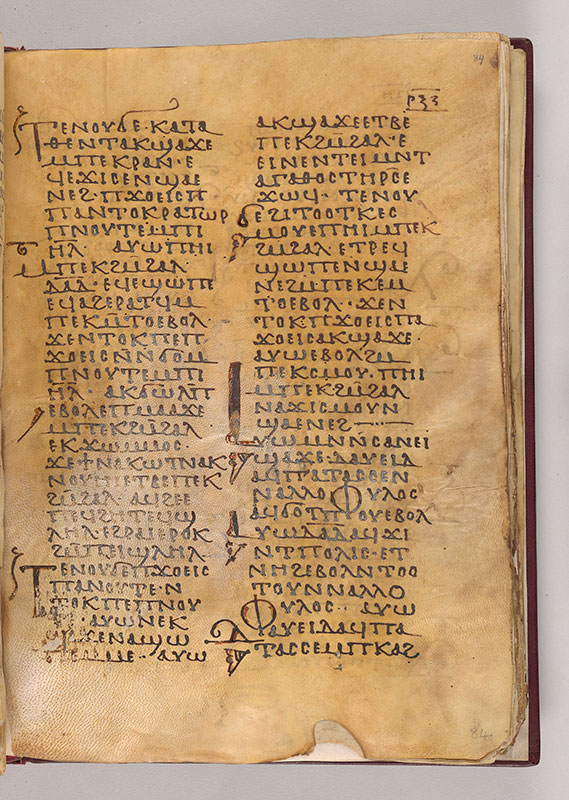 ⲣⲝⲍ
ⲧⲉⲛⲟⲩϭⲉ· ⲕⲁⲧⲁ
ⲑⲉⲛⲧⲁⲕϣⲁϫⲉ
ⲙⲡⲉⲕⲣⲁⲛ· ⲉ
ϥⲉϫⲓⲥⲉⲛϣⲁⲉ
ⲛⲉϩ· ⲡϫⲟⲉⲓⲥⲡ
ⲡⲁⲛⲧⲟⲕⲣⲁⲧⲱⲣ
ⲡⲛⲟⲩⲧⲉⲙⲡⲓ
ⲏⲗ· ⲁⲩⲱⲡⲏⲓ
ⲙⲡⲉⲕϩⲙϩⲁⲗ
ⲇⲁⲇ· ⲉϥⲉϣⲱⲡⲉ
ⲉϥⲁϩⲉⲣⲁⲧϥⲙ
ⲡⲉⲕⲙⲧⲟⲉⲃⲟⲗ·
ϫⲉⲛⲧⲟⲕⲡⲉⲡ
ϫⲟⲉⲓⲥⲛⲛϭⲟⲙ
ⲡⲛⲟⲩⲧⲉⲙⲡⲓ
ⲏⲗ· ⲁⲕϭⲱⲗⲡ
ⲉⲃⲟⲗⲉⲡⲙⲁⲁϫⲉ
ⲙⲡⲉⲕϩⲙϩⲁⲗ
ⲉⲕϫⲱⲙⲙⲟⲥ
ϫⲉϯⲛⲁⲕⲱⲧⲛⲁⲕ
ⲛⲟⲩⲏⲓⲉⲧⲃⲉⲡⲉⲕ
ϩⲙϩⲁⲗ· ⲁϥϩⲉⲉ
ⲡⲉϥϩⲏⲧⲉϥϣ
ⲗⲏⲗⲉϩⲣⲁⲓⲉⲣⲟⲕ
ϩⲙⲡⲉⲓϣⲗⲏⲗ
ⲧⲉⲛⲟⲩϭⲉⲡϫⲟⲉⲓⲥ
ⲡⲁⲛⲟⲩⲧⲉ· ⲛ
ⲧⲟⲕⲡⲉⲡⲛⲟⲩ
ⲧⲉ· ⲁⲩⲱⲛⲉⲕ
ϣⲁϫⲉⲛⲁϣⲱ
ⲡⲉⲙⲙⲉ· ⲁⲩⲱ
ⲁⲕϣⲁϫⲉⲉⲧⲃⲉ
ⲡⲉⲕϩⲙϩⲁⲗ· ⲉ
ⲉⲓⲛⲉⲛⲛⲉⲓⲙⲛⲧ
ⲁⲅⲁⲑⲟⲥⲧⲏⲣⲥⲉ
ϫⲱϥ· ⲧⲉⲛⲟⲩ
ϭⲉϩⲓⲧⲟⲟⲧⲕⲉⲥ
ⲙⲟⲩⲉⲡⲏⲓⲙⲡⲉⲕ
ϩⲙϩⲁⲗ· ⲉⲧⲣⲉϥ
ϣⲱⲡⲉⲛϣⲁⲉ
ⲛⲉϩⲙⲡⲉⲕⲙ
ⲧⲟⲉⲃⲟⲗ· ϫⲉⲛ
ⲧⲟⲕⲡϫⲟⲉⲓⲥⲡⲁ
ϫⲟⲉⲓⲥⲁⲕϣⲁϫⲉ·
ⲁⲩⲱⲉⲃⲟⲗϩⲙ
ⲡⲉⲕⲥⲙⲟⲩ· ⲡⲏⲓ
ⲙⲡⲉⲕϩⲙϩⲁⲗ
ⲛⲁϫⲓⲥⲙⲟⲩⲛ
ϣⲁⲉⲛⲉϩ
ⲁⲩⲱⲙⲛⲛⲥⲁⲛⲉⲓ
ϣⲁϫⲉ· ⲇⲁⲩⲉⲓⲇ
ⲁϥⲡⲁⲧⲁⲥⲥⲉⲛ
ⲛⲁⲗⲗⲟⲫⲩⲗⲟⲥ
ⲁϥϭⲟⲧⲡⲟⲩⲉⲃⲟⲗ
ⲁⲩⲱⲇⲁⲇⲁϥϫⲓ
ⲛⲧⲡⲟⲗⲓⲥ· ⲉⲧ
ⲛⲏϩⲉⲃⲟⲗⲛⲧⲟⲟ
ⲧⲟⲩⲛⲛⲁⲗⲗⲟ
ⲫⲩⲗⲟⲥ·· ⲁⲩⲱ
ⲇⲁⲩⲉⲓⲇⲁϥⲡⲁ
ⲧⲁⲥⲥⲉⲙⲡⲕⲁϩ
84
84